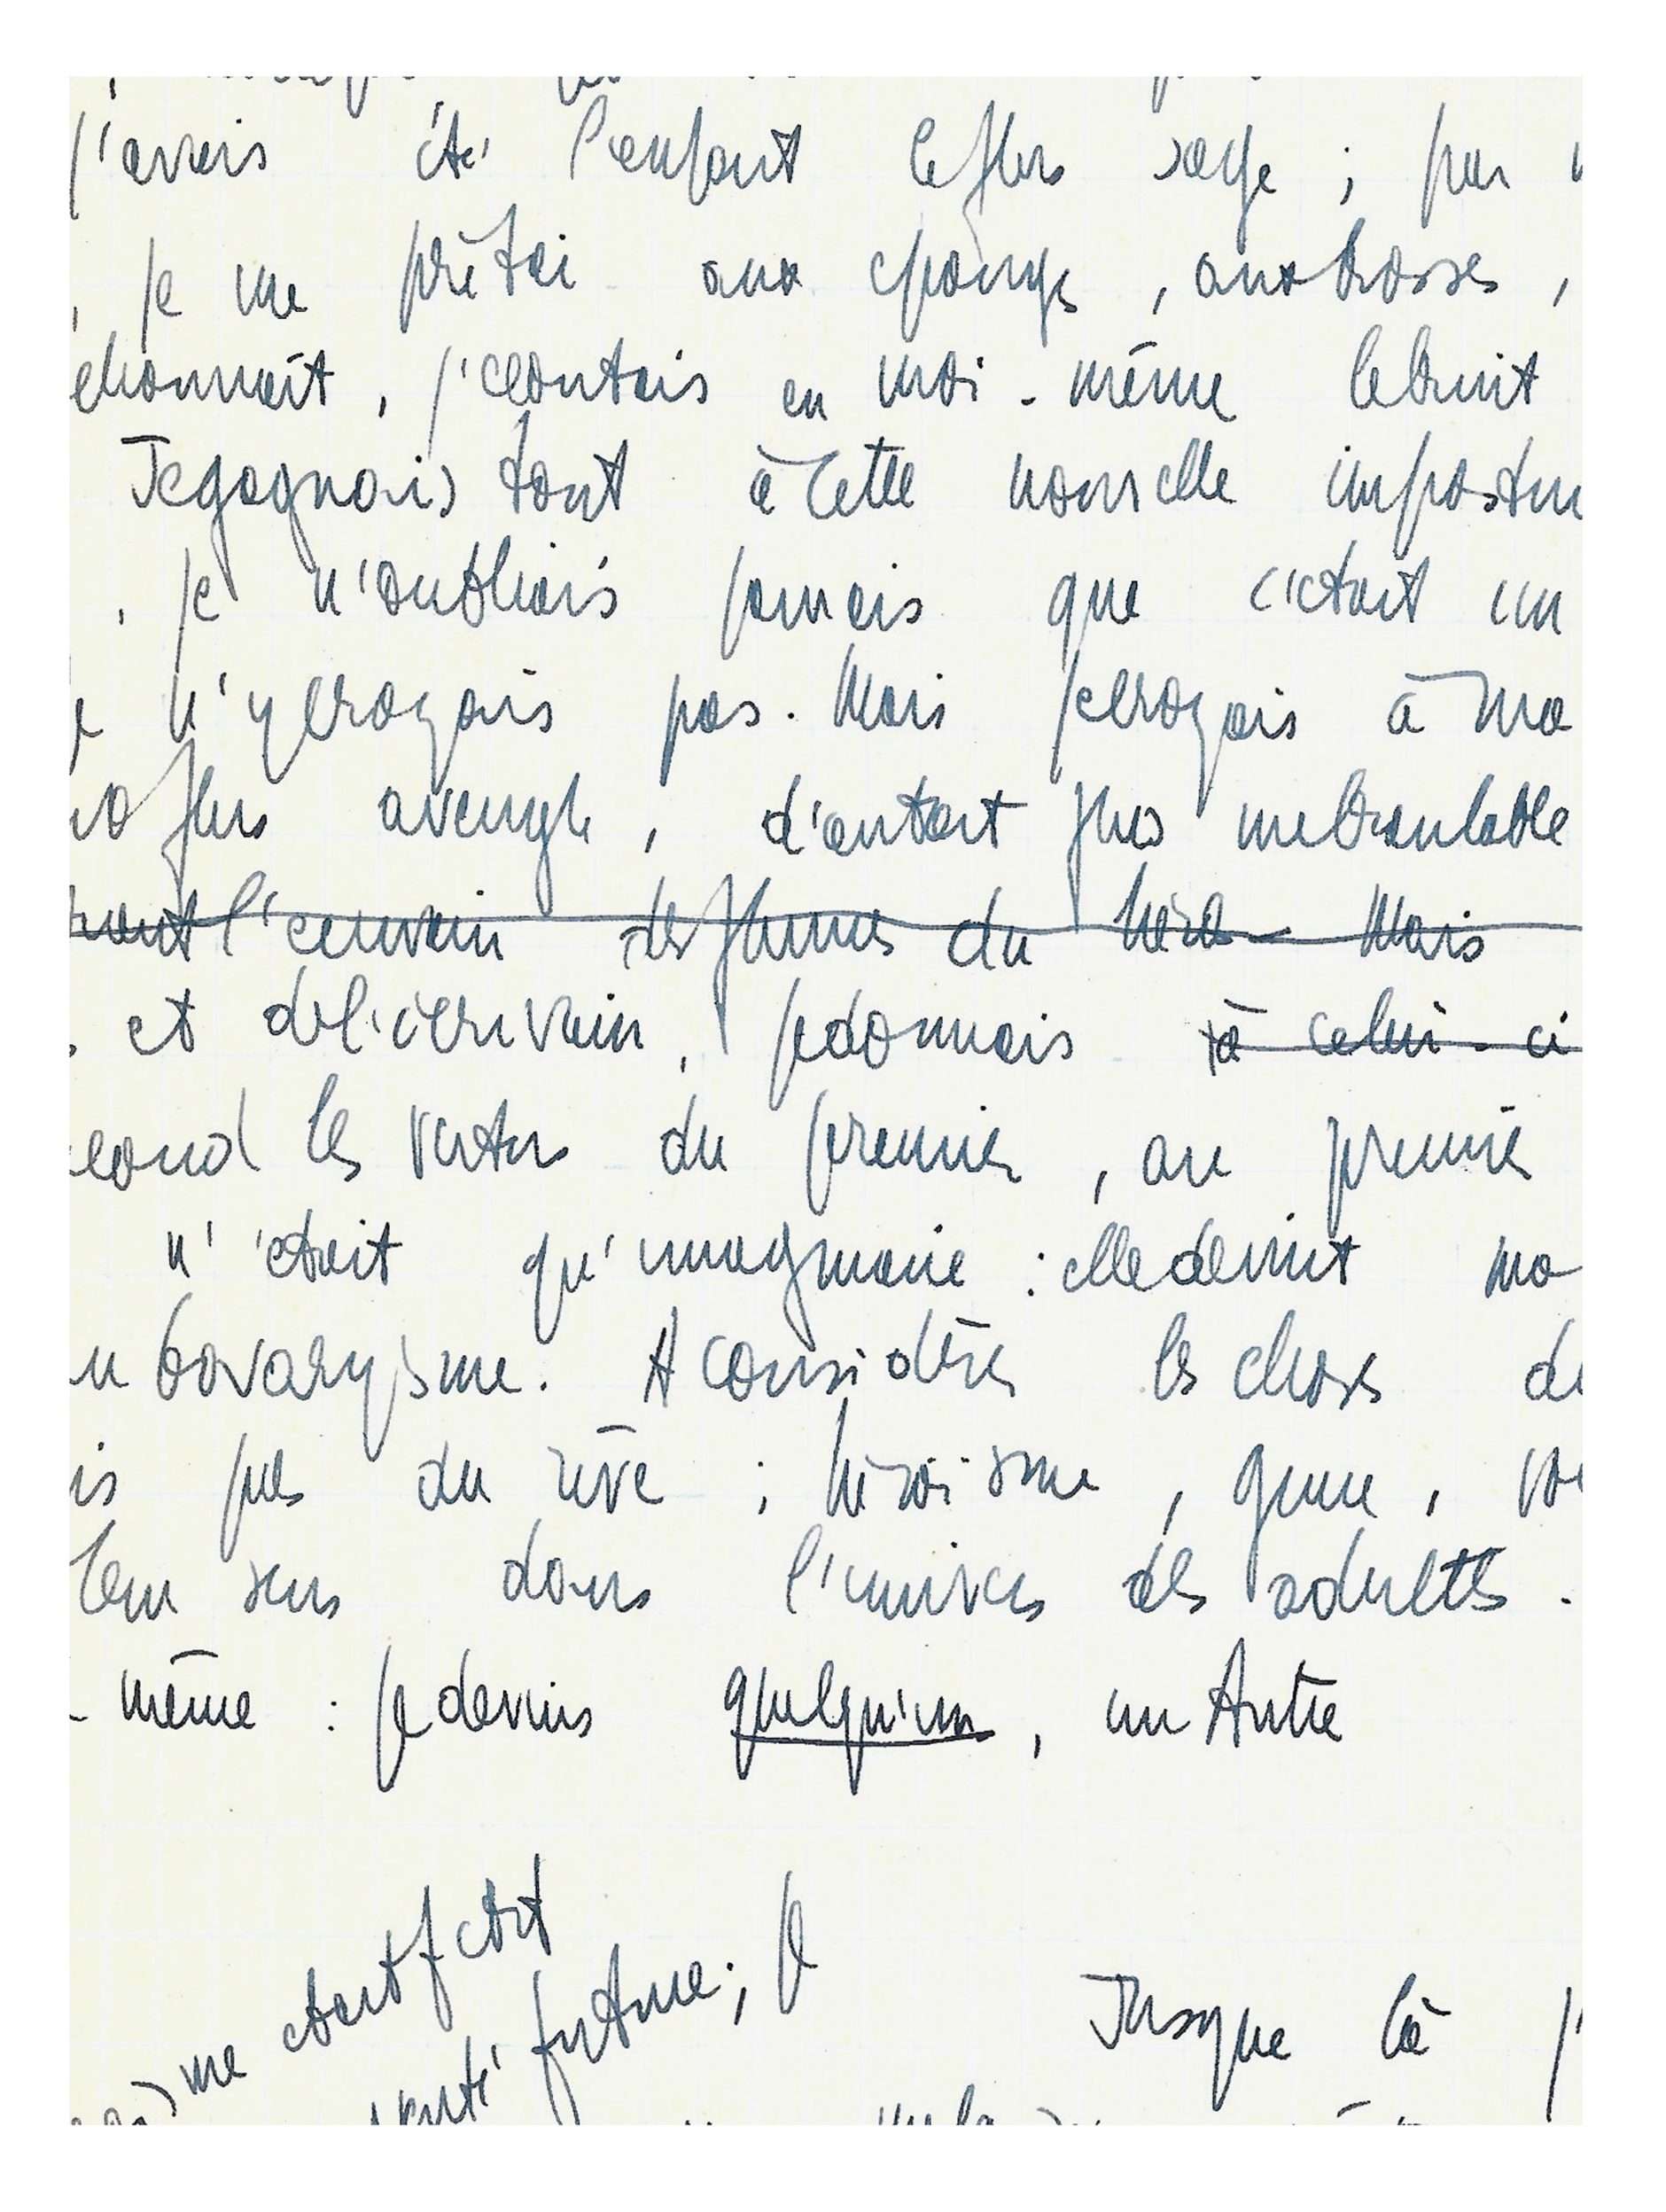 j'avais été l'enfant le plus sage ; par
, je me prêtai aux éponges, aux brosses,
chonnait, j'écoutais en moi-même le bruit
Je gagnais tout à cette nouvelle impostu
, je n'oubliais jamais que c'était un
je n'y croyais pas. Mais je croyais à ma
plus aveugle, d'autant plus inébranlable
l'écrivain des plumes du héros Mais
, et de l'écrivain, je donnais à celui-ci
cond les vertus du premier, au premier
n'était qu'imaginaire : elle devint ma
bovarysme. A considérer les choses de
is pas du rêve ; héroïsme, génie,
leur sens dans l'univers des adultes.
-même : je devins quelqu'un, un Autre
me était
future ; Je
Jusque là j'